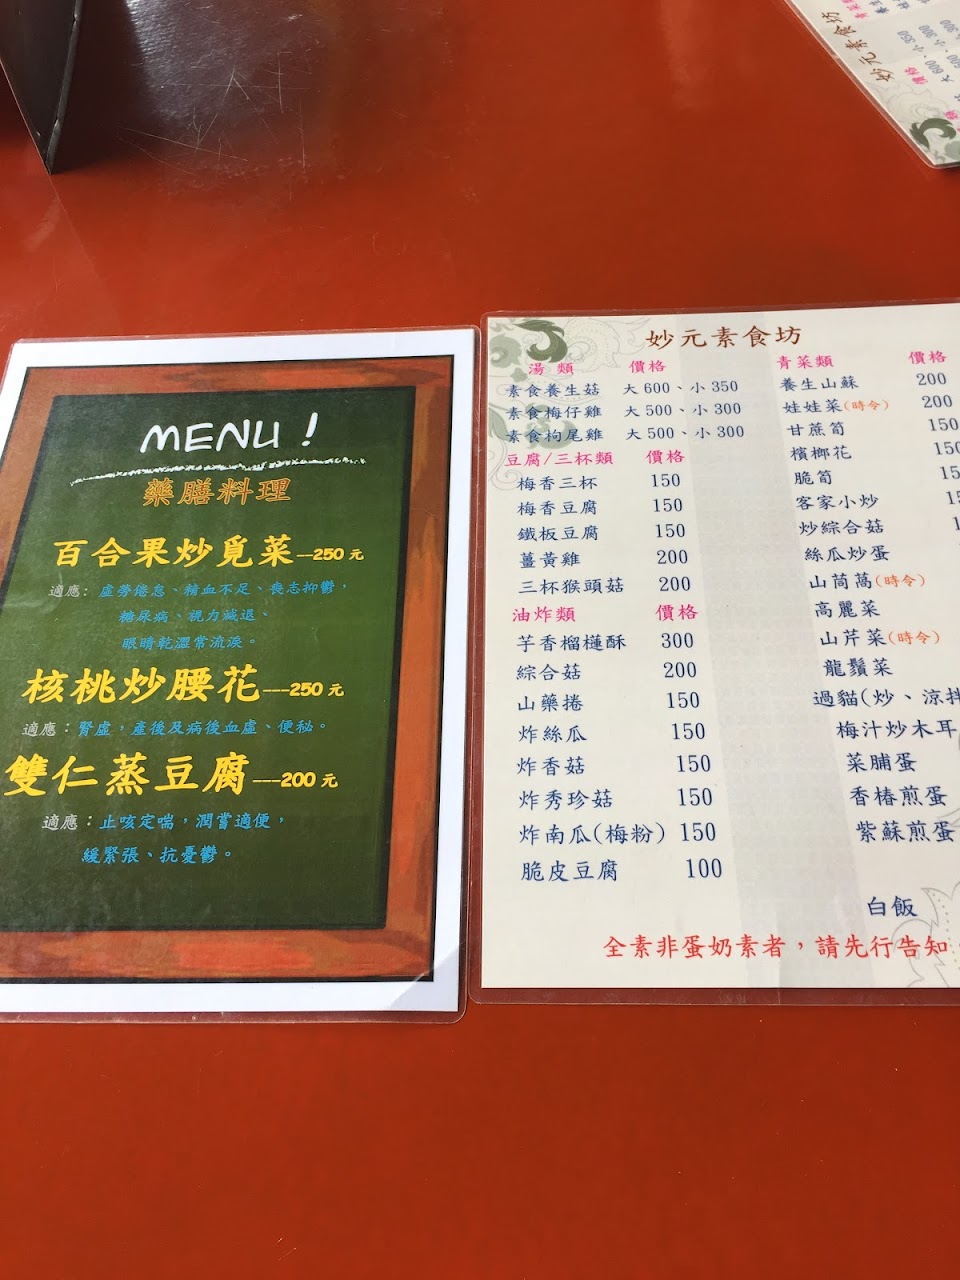 MENU！
藥膳料理
百合果炒覓菜---250 元
適應：虛勞倦怠、精血不足、喪志抑鬱，
糖尿病、視力減退、
眼睛乾澀常流淚。
核桃炒腰花----250 元
適應：腎虛，產後及病後血虛、便秘。
雙仁蒸豆腐----200 元
適應：止咳定喘，潤嘗適便，
緩緊張、抗憂鬱。
妙元素食坊
湯 類 價格
素食養生菇 大 600、小 350
素食梅仔雞 大 500、小 300
素食枸尾雞 大 500、小 300
豆腐/三杯類 價格
梅香三杯 150
梅香豆腐 150
鐵板豆腐 150
薑黃雞 200
三杯猴頭菇 200
油炸類 價格
芋香榴槤酥 300
綜合菇 200
山藥捲 150
炸絲瓜 150
炸香菇 150
炸秀珍菇 150
炸南瓜(梅粉) 150
脆皮豆腐 100
青菜類 價格
養生山蘇 200
娃娃菜(時令) 200
甘蔗筍 150
檳榔花 150
脆筍 15
客家小炒
炒綜合菇
絲瓜炒蛋
山茼萵(時令)
高麗菜
山芹菜(時令)
龍鬚菜
過貓(炒、涼拌
梅汁炒木耳
菜脯蛋
香椿煎蛋
紫蘇煎蛋
白飯
全素非蛋奶素者，請先行告知
妙元素食坊
價格
大 600、小 350